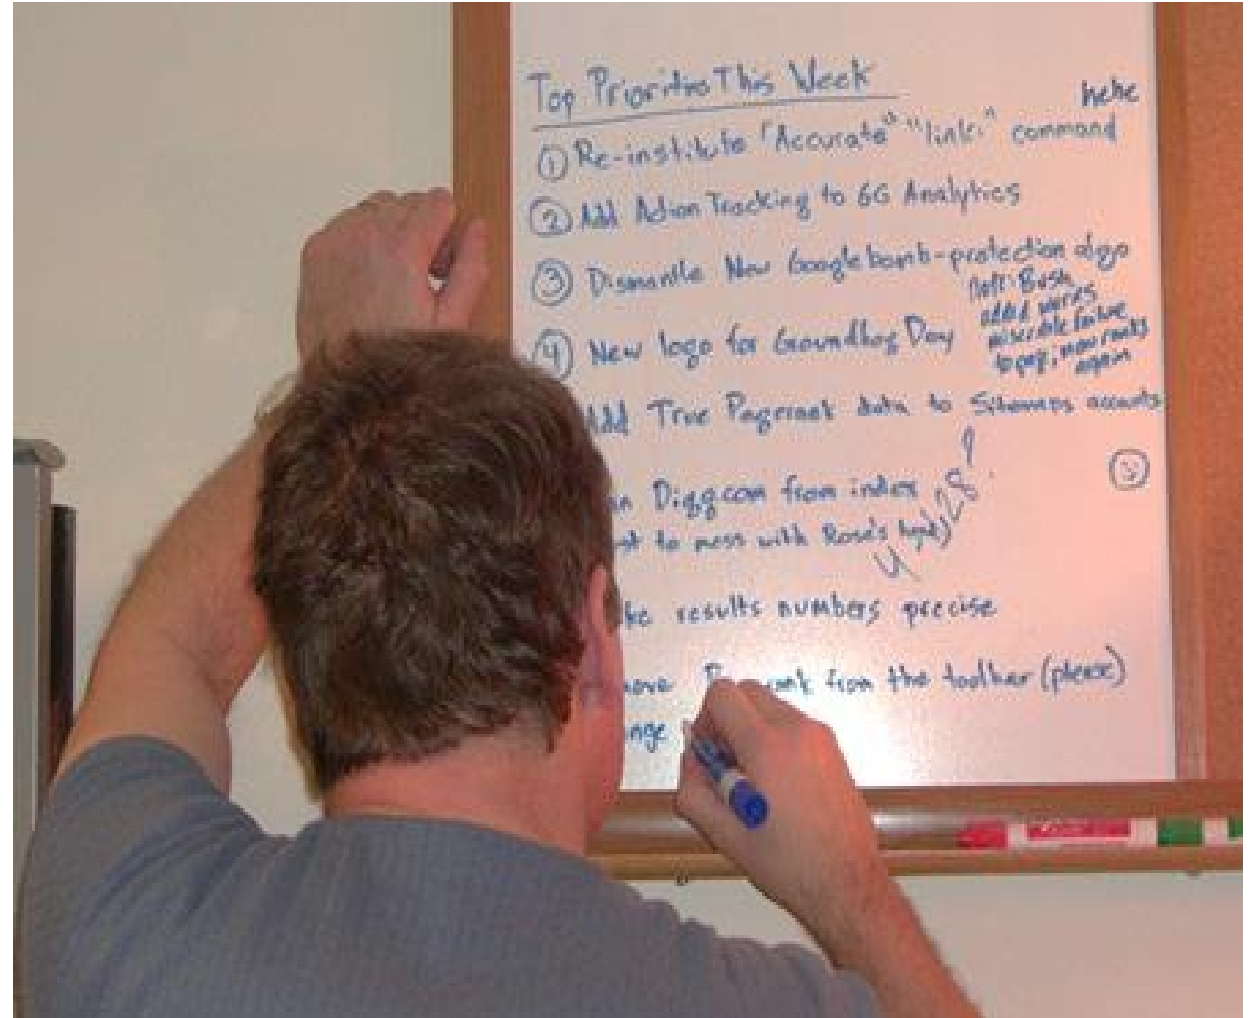 Top Priorities This Week
hehe
① Re-institute "Accurate" "link:" command
② Add Action Tracking to GG Analytics
③ Dismantle New Googlebomb-protection algo
note: Bush
added words
miserable failure
to pag, now ranks
again
④ New logo for Groundhog Day
Add True Pagerank data to Sitemaps accounts
Digg.com from index
to mess with Rose's
results numbers precise
from the toolbar (please)